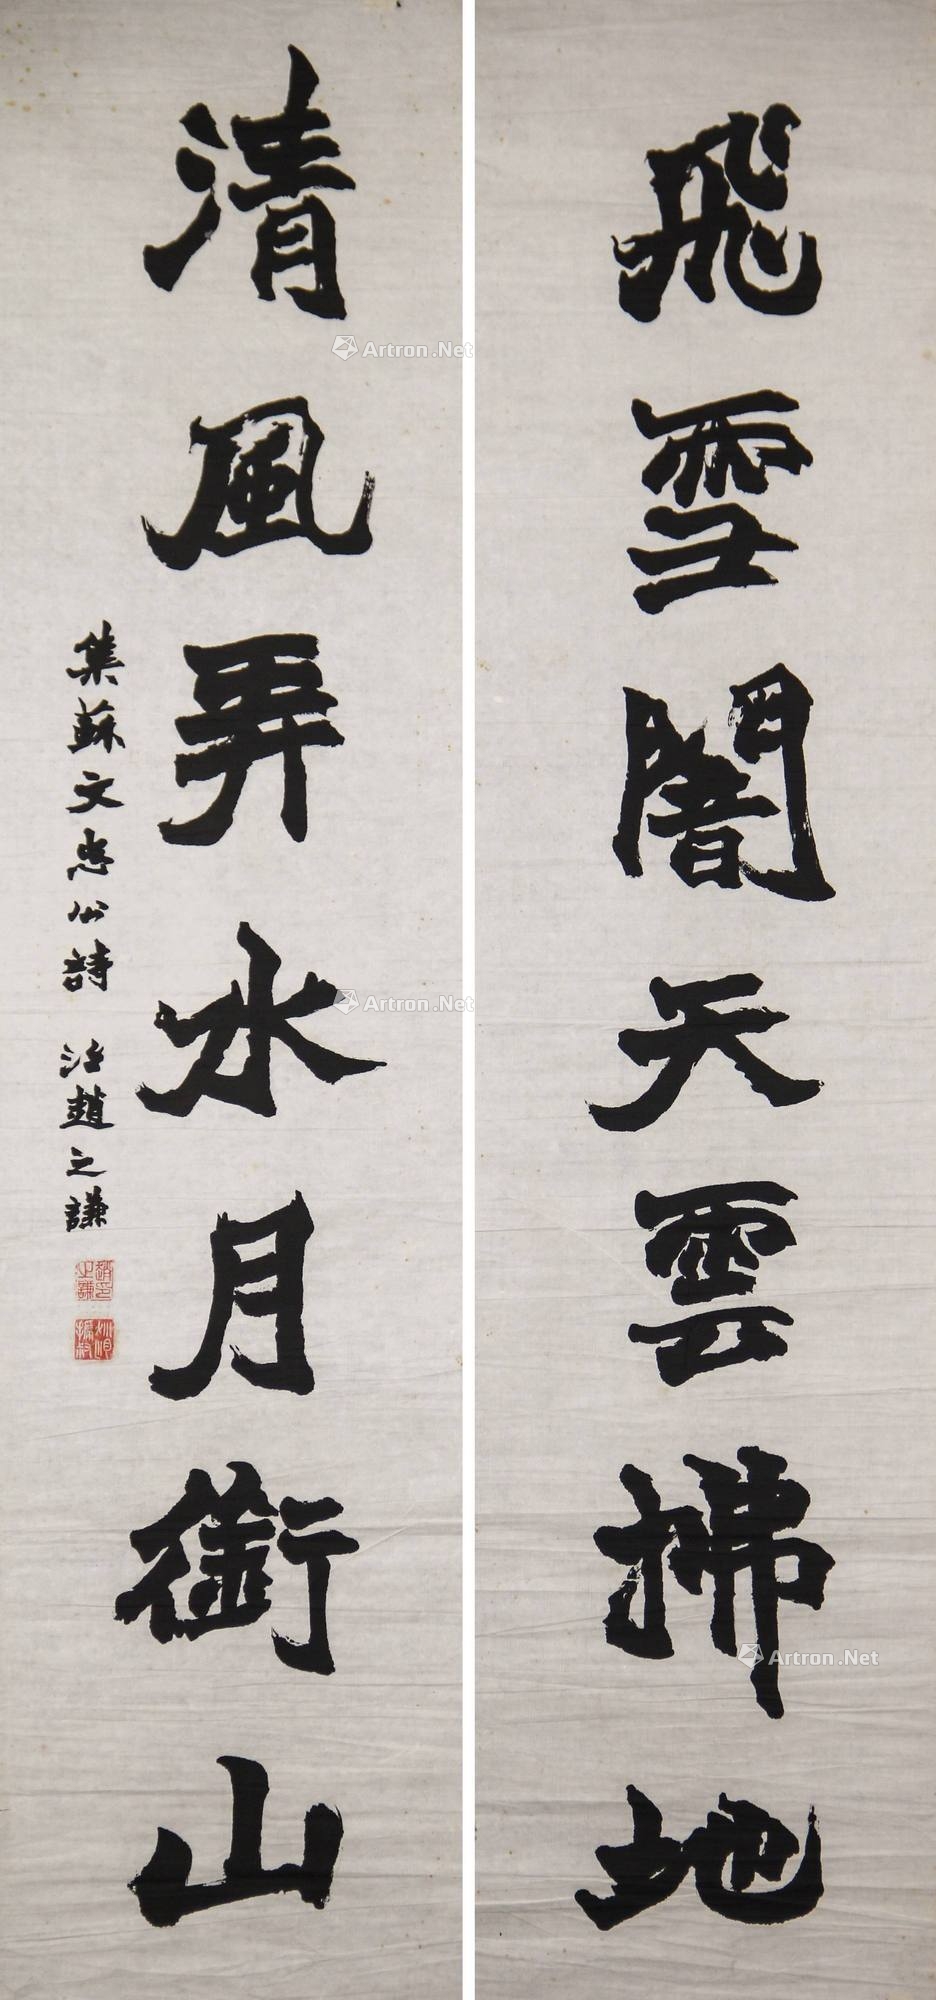 飛雪闇天雲掃地
清風弄水月銜山
集蘇文忠公詩 治趙之謙
趙之謙印
Artron.Net
Artron.Net
Artron.Net